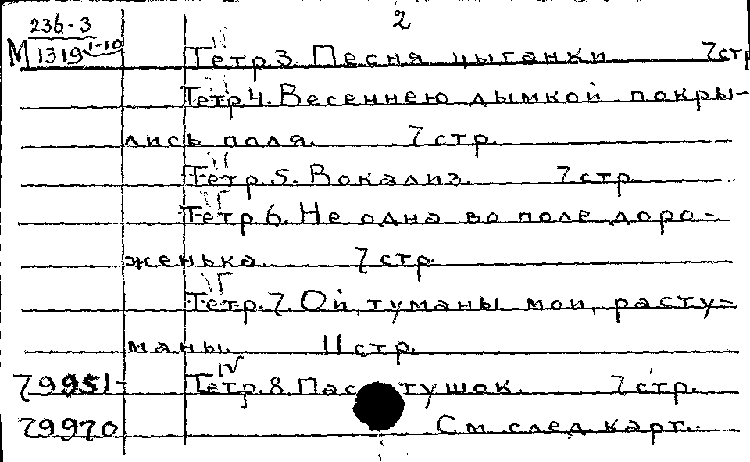 2
236-3
М 1319 1-10
Тетр 3. Песня цыганки 7 стр
Тетр 4. Весеннею дымкой покры-
лись поля. 7 стр.
Тетр. 5. Вокализ. 7 стр
Тетр 6. Не одна во поле доро-
женька. 7 стр
Тетр. 7. Ой, туманы мои, расту-
маны. 11 стр.
79951- Тетр. 8. 7 стр.
79970 См. след. карт.